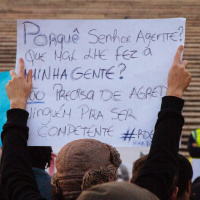 Porquê Senhor Agente?
Que mal lhe fez a
minha gente?
Não precisa de agredir
ninguém pra ser
competente #